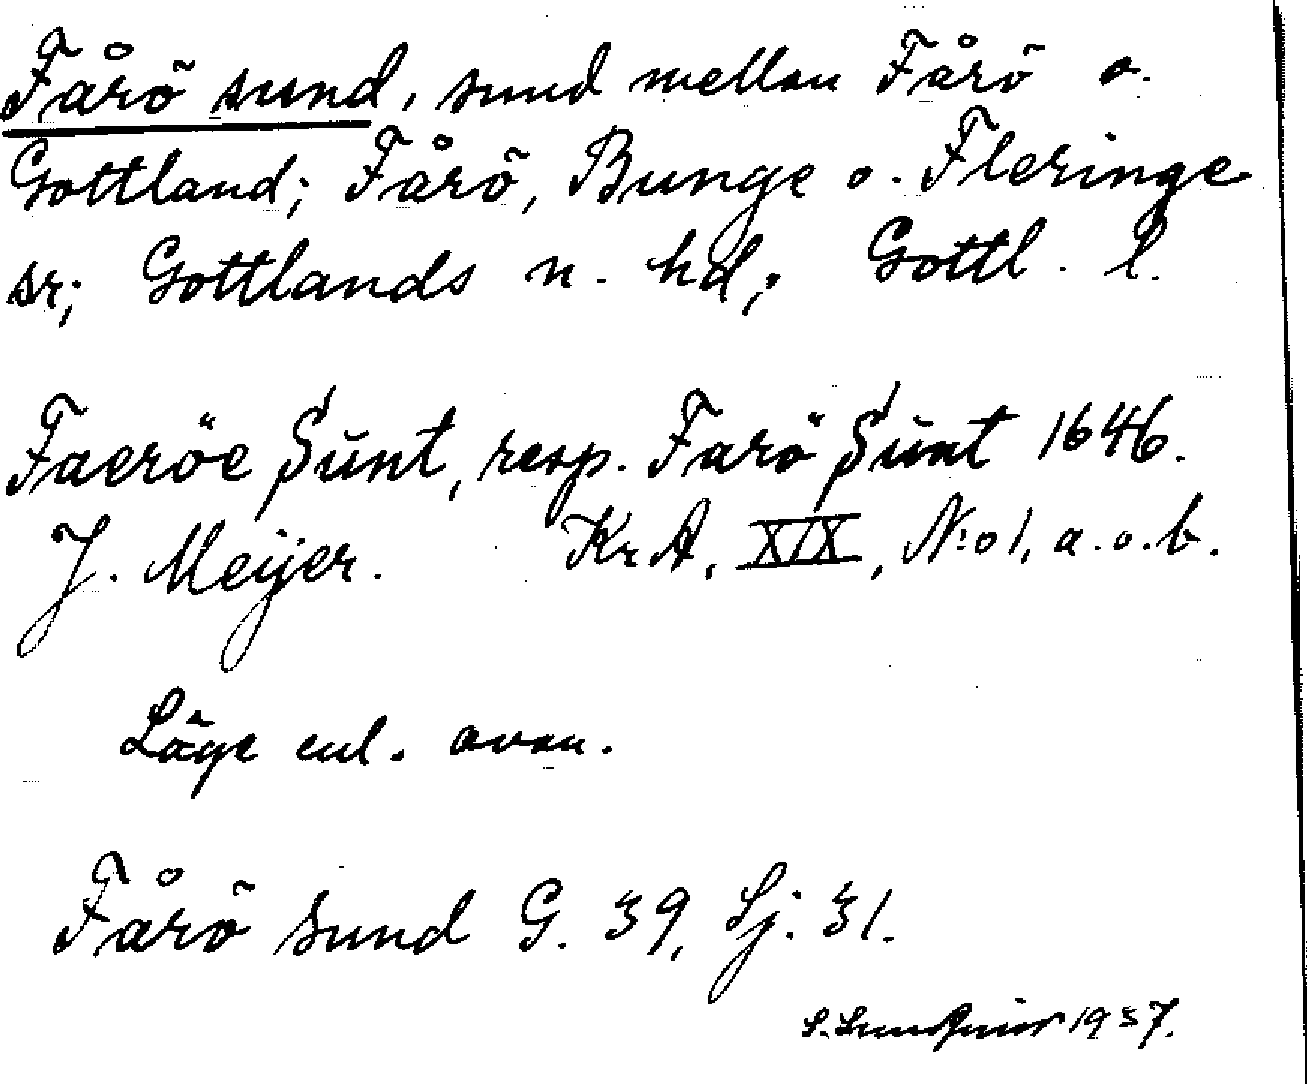 Fårö sund, sund mellan Fårö o.
Gottland; Fårö, Bunge o. Fleringe
sr; Gottlands n. hd; Gottl. l.
Faeröe Sŭnt, resp. Farö Sŭnt 1646.
J. Meijer. Kr. A, XIX, N:o 1, a.o.b.
Läge enl. ovan.
Fårö sund G. 39, Sj. 31.
1937.